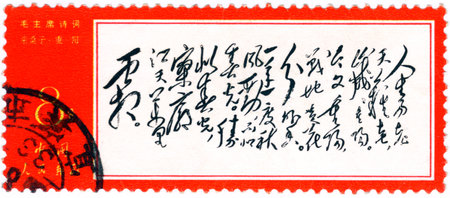 毛主席诗词
采桑子·重阳
8
中国
人民邮政
人生易老
天难老
岁岁重阳
今又重阳
战地黄花
分外香
一年一度秋
风劲不似
春光胜
似春光
寥廓
江天万里
霜